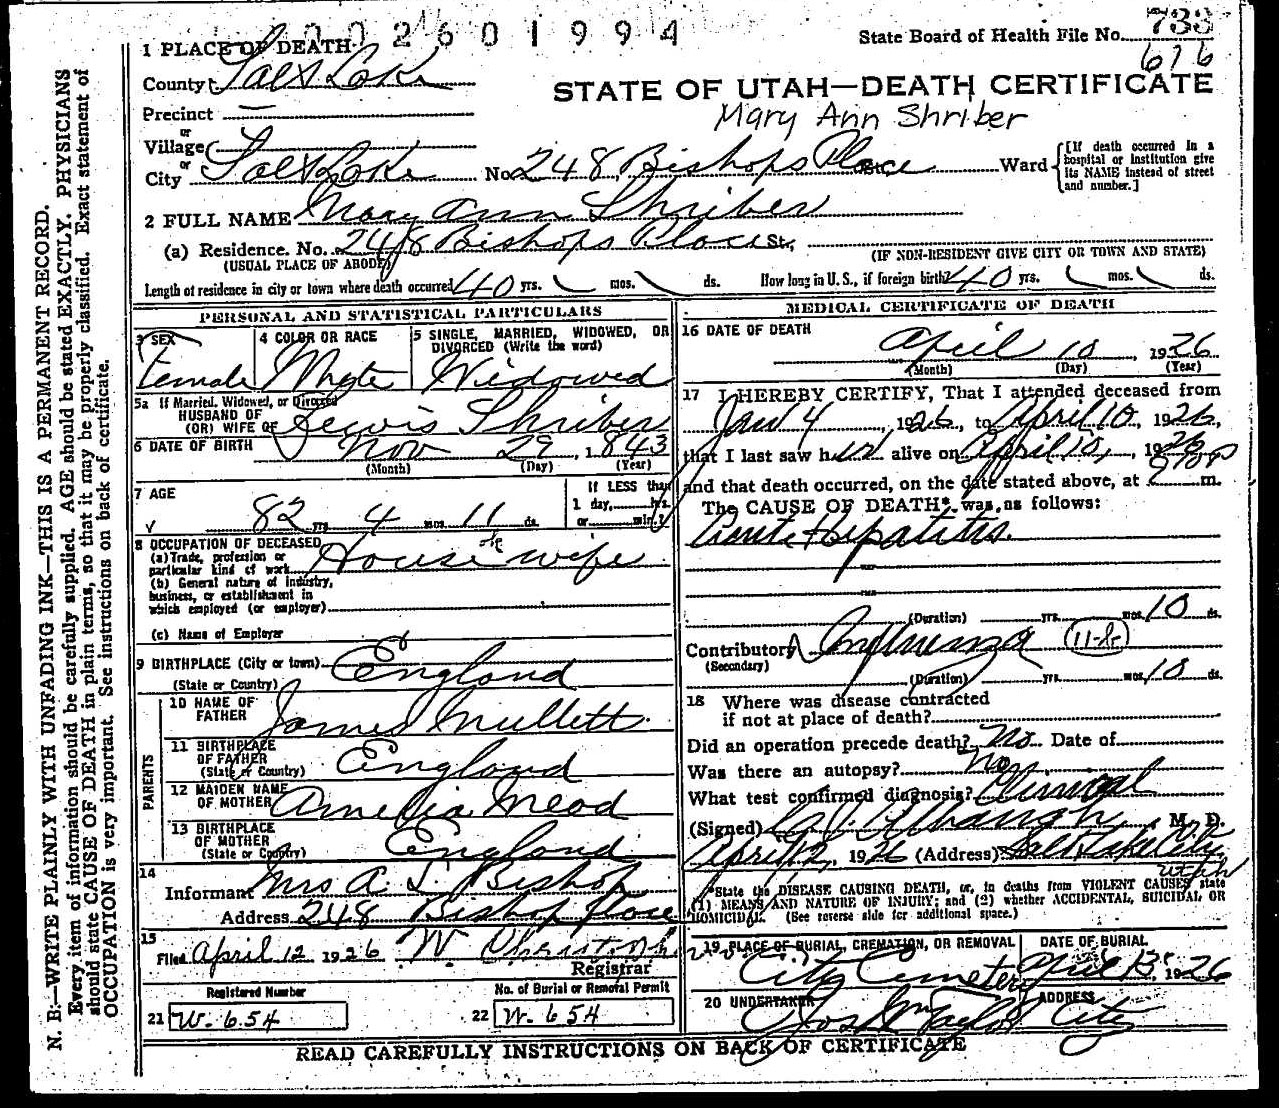 002601994
733
State Board of Health File No.
676
1 PLACE OF DEATH
County Salt Lake
STATE OF UTAH—DEATH CERTIFICATE
Precinct —
Mary Ann Shriber
or
Village
or
City Salt Lake No. 248 Bishops Place St. Ward
[If death occurred in a hospital or institution give its NAME instead of street and number.]
2 FULL NAME Mary Ann Shriber
(a) Residence. No. 248 Bishops Place St.
(USUAL PLACE OF ABODE) (IF NON-RESIDENT GIVE CITY OR TOWN AND STATE)
Length of residence in city or town where death occurred 40 yrs. mos. ds. How long in U. S., if foreign birth? 40 yrs. mos. ds.
PERSONAL AND STATISTICAL PARTICULARS
3 SEX
Female
4 COLOR OR RACE
Whyte
5 SINGLE, MARRIED, WIDOWED, OR
DIVORCED (Write the word)
Widowed
5a If Married, Widowed, or Divorced
HUSBAND OF
(OR) WIFE OF Lewis Shriber
6 DATE OF BIRTH Nov 29, 1843
(Month) (Day) (Year)
7 AGE
82 yrs 4 mos. 11 ds.
If LESS than
1 day, hrs.
or min.?
8 OCCUPATION OF DECEASED
(a) Trade, profession or
particular kind of work House wife
(b) General nature of industry,
business, or establishment in
which employed (or employer)
(c) Name of Employer
9 BIRTHPLACE (City or town) England
(State or Country)
PARENTS
10 NAME OF
FATHER James Mullett
11 BIRTHPLACE
OF FATHER England
(State or Country)
12 MAIDEN NAME
OF MOTHER Amelia Mead
13 BIRTHPLACE
OF MOTHER England
(State or Country)
14
Informant Mrs A L Bishop
Address 248 Bishop Place
15
Filed April 12 1926 W
Registrar
Registered Number
21 W. 654
No. of Burial or Removal Permit
22 W. 654
MEDICAL CERTIFICATE OF DEATH
16 DATE OF DEATH
April 10, 1926
(Month) (Day) (Year)
17 I HEREBY CERTIFY, That I attended deceased from
Jan 4, 1926, to April 10, 1926,
that I last saw her alive on April 10, 1926
and that death occurred, on the date stated above, at m.
The CAUSE OF DEATH* was as follows:
Acute Hepatitis.
(Duration) yrs. mos. 10 ds.
Contributory Influenza
(Secondary)
(Duration) yrs. mos. 10 ds.
18 Where was disease contracted
if not at place of death?
Did an operation precede death? No Date of
Was there an autopsy? No
What test confirmed diagnosis? Clinical
(Signed) M. D.
April 12, 1926 (Address) Salt Lake City
Utah
*State the DISEASE CAUSING DEATH, or, in deaths from VIOLENT CAUSES state
(1) MEANS AND NATURE OF INJURY; and (2) whether ACCIDENTAL, SUICIDAL OR
HOMICIDAL. (See reverse side for additional space.)
19 PLACE OF BURIAL, CREMATION, OR REMOVAL
City Cemetery
DATE OF BURIAL
April 13, 1926
20 UNDERTAKER
Jos Wm Taylor
ADDRESS
City
READ CAREFULLY INSTRUCTIONS ON BACK OF CERTIFICATE
N. B.—WRITE PLAINLY WITH UNFADING INK—THIS IS A PERMANENT RECORD.
Every item of information should be carefully supplied. AGE should be stated EXACTLY. PHYSICIANS
should state CAUSE OF DEATH in plain terms, so that it may be properly classified. Exact statement of
OCCUPATION is very important. See instructions on back of certificate.